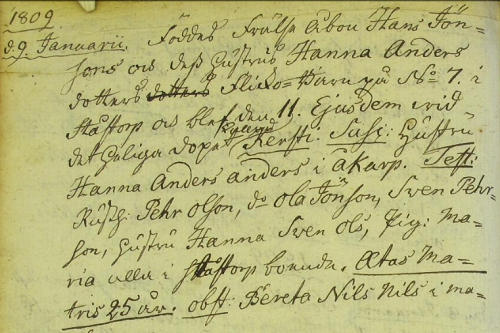 1809
d. 9. Januarii. Föddes Frälse Åbon Hans Jön-
sons och dess hustrus Hanna Anders
dotters dotters Flicko-Barn på No 7. i
Ståstorp och blef den 11. Ejusdem vid
det heliga Dopet nämnd Kersti. Susc: Hustru
Hanna Anders anders i Åkarp. Test:
Rusth: Pehr Olson, do Ola Jönson, Sven Pehr-
son, hustru Hanna Sven Ols, Pig: Ma-
ria alla i Ståstorp boende. Ætas Ma-
tris 25 år. obst: Bereta Nils Nils i